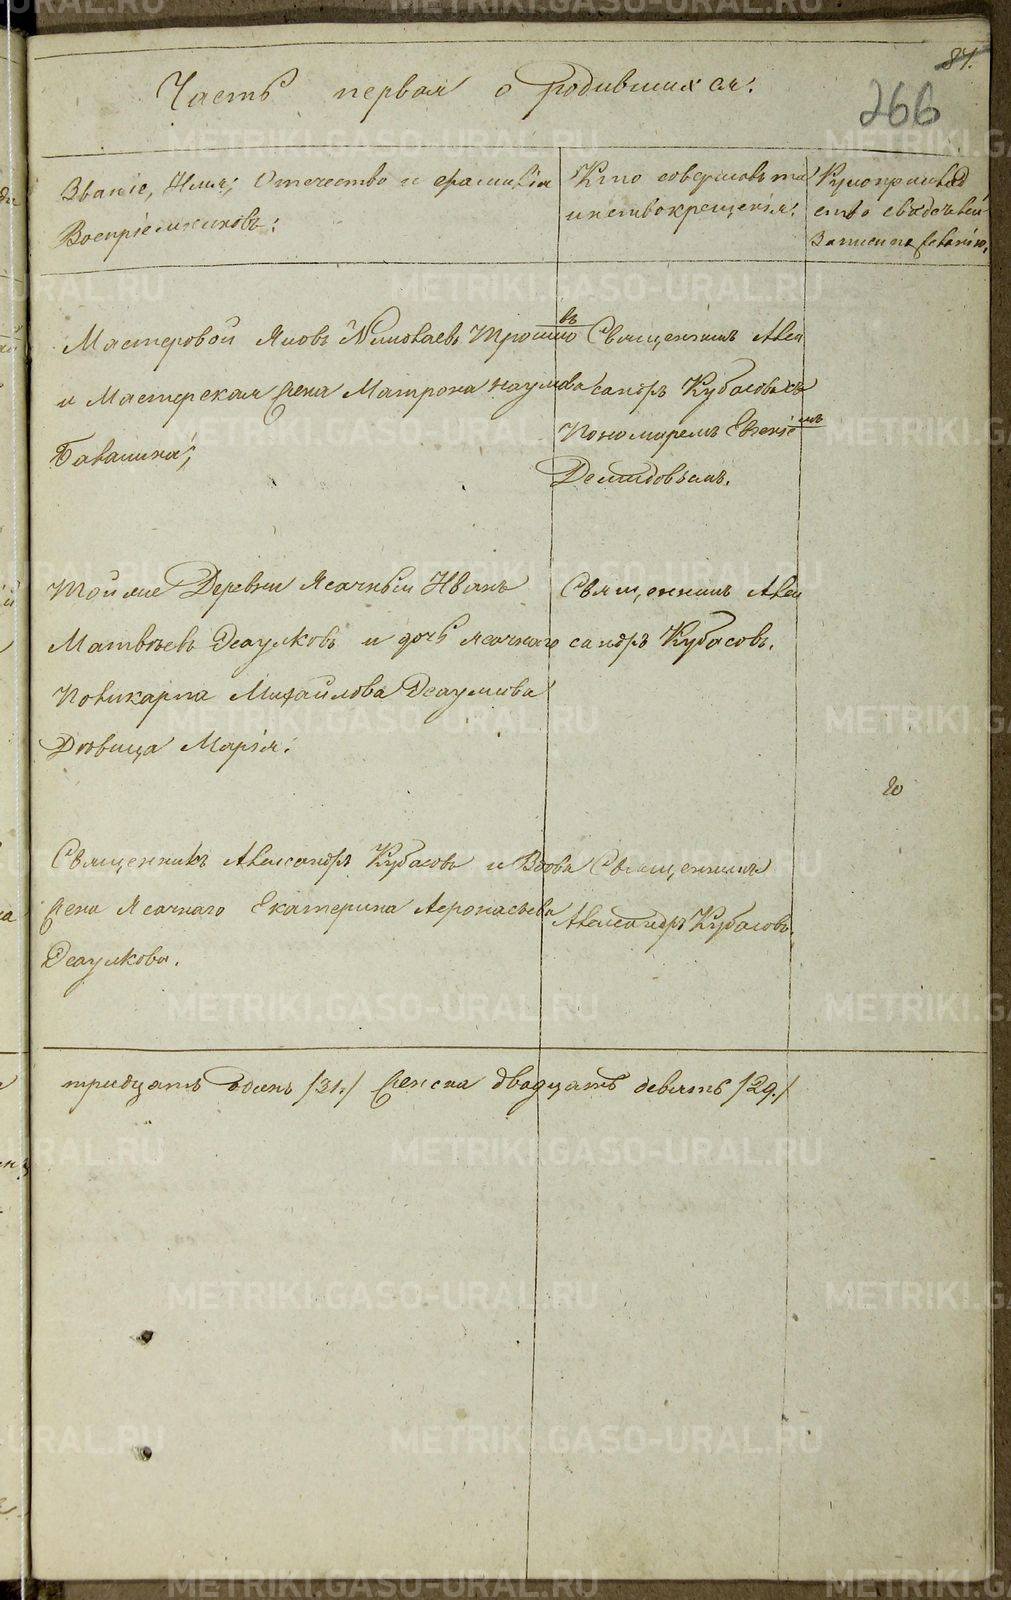 87.
266
Часть первая о родившихся:
Званіе, Имя, Отечество и фамилія
Воспріемниковъ:
Кто совершалъ та
инство крещенія:
Рукоприклад
ство свидѣтелей
записи по желанію,
Мастеровой Яковъ Николаевъ Трошко
въ
и Мастерская жена Матрона Наумова
Священникъ Алек
сандръ Кубасовъ съ
Пономаремъ Евгеніе
мъ
Демидовымъ.
Той же Деревни Ясачный Иванъ
Матвѣевъ и дочь ясачнаго
Поликарпа Михайлова
Дѣвица Марія:
Священникъ Алек
сандръ Кубасовъ.
Священникъ Александръ Кубасовъ и Вдова
жена Ясачнаго Екатерина Афонасьева
Священникъ
Александръ Кубасовъ.
тридцать одинъ /31./ Женска двадцать девять /29./
METRIKI.GASO-URAL.RU